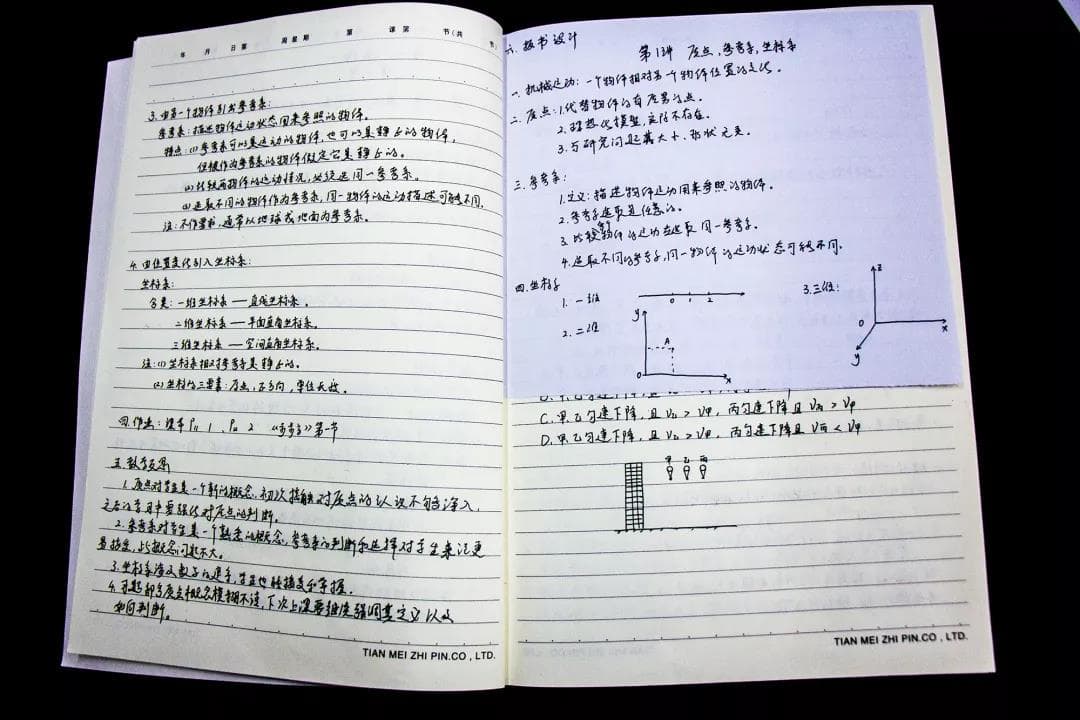 年 月 日第 周星期 第 课第 节(共 节)
3. 由另一个物体引出参考系:
参考系: 描述物体运动状态用来参照的物体。
特点: (1) 参考系可以是运动的物体, 也可以是静止的物体,
但被作为参考系的物体假定它是静止的。
(2) 比较两物体的运动情况, 必须选同一参考系。
(3) 选取不同的物体作为参考系, 同一物体的运动描述可能不同。
注: 不作要求, 通常以地球或地面为参考系。
4. 由位置变化引入坐标系:
坐标系:
分类: 一维坐标系 — 直线坐标系。
二维坐标系 — 平面直角坐标系。
三维坐标系 — 空间直角坐标系。
注: (1) 坐标系相对参考系是静止的。
(2) 坐标的三要素: 原点, 正方向, 单位长度。
四. 作业: 课本 P11 1、P11 2 《步步高》第一节
五. 教学反思
1. 质点对学生是一个新的概念, 初次接触对质点的认识不够深入,
之后的学习中要强化对质点的判断。
2. 参考系对学生是一个熟悉的概念, 参考系的判断和选择对学生来说更
易接受, 此概念问题不大。
3. 坐标系涉及数学的选择, 学生也能接受和掌握。
4. 部分质点概念模糊不清, 下次上课要继续强调其定义以及
如何判断。
TIAN MEI ZHI PIN.CO , LTD.
六. 板书设计
第1讲 质点, 参考系, 坐标系
一. 机械运动: 一个物体相对另一个物体位置的变化。
二. 质点: 1. 代替物体的有质量的点。
2. 理想化模型, 实际不存在。
3. 与研究问题其大小、形状无关。
三. 参考系:
1. 定义: 描述物体运动用来参照的物体。
2. 参考系选取是任意的。
3. 比较物体的运动应选取同一参考系。
4. 选取不同的参考系, 同一物体的运动状态可能不同。
四. 坐标系
1. 一维
0 1 2
2. 二维
y
A
0 x
3. 三维:
z
0 x
y
C. 甲、乙匀速下降, 且 V乙 > V甲, 丙匀速下降且 V丙 > V甲
D. 甲、乙匀速下降, 且 V乙 > V甲, 丙匀速下降且 V丙 < V甲
甲 乙 丙
TIAN MEI ZHI PIN.CO , LTD.